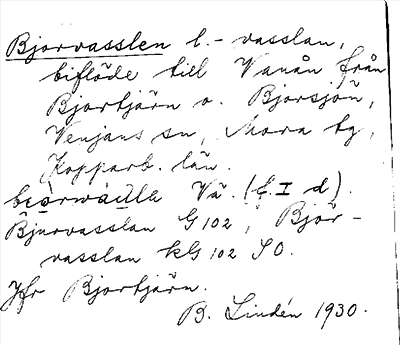 Bjorvasslen l. -vasslan,
biflöde till Vanån från
Bjortjärn o. Bjorsjön,
Venjans sn, Mora tg,
Kopparb. län.
Vä. (f. I d).
Bjurvasslan G 102, Bjor-
vasslan kG 102 SO.
Jfr Bjortjärn.
B. Lindén 1930.